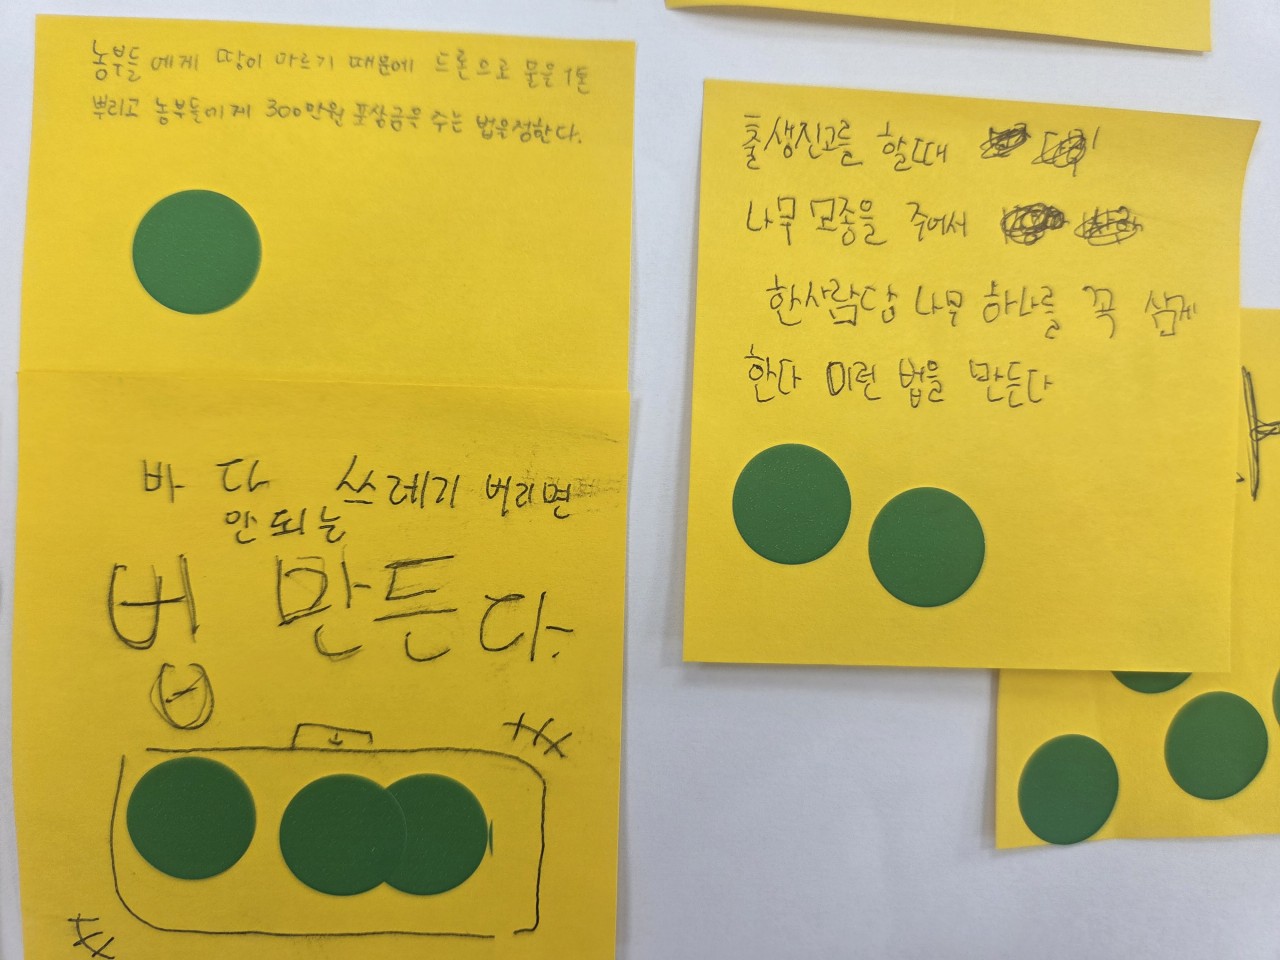 농부들에게 땅이 마르기 때문에 드론으로 물을 1톤
뿌리고 농부들에게 300만원 포상금을 주는 법을정한다.
바다 쓰레기 버리면
안되는
법 만든다.
출생진고를 할때
나무 모종을 주어서
한사람당 나무 하나를 꼭 심게
한다 이런 법을 만든다